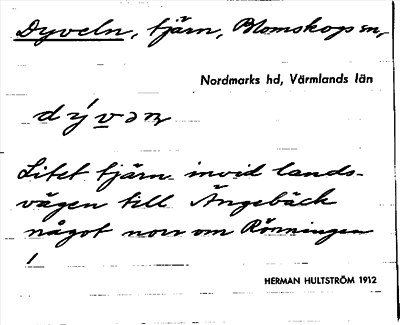 Dyveln, tjärn, Blomskogs sn,
Nordmarks hd, Värmlands län
Litet tjärn invid lands-
vägen till Ängebäck
något norr om Rönningen
HERMAN HULTSTRÖM 1912